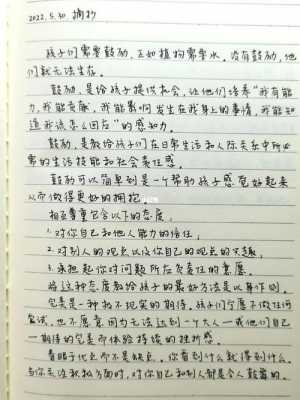 2022.5.30 摘抄
孩子们需要鼓励,正如植物需要水。没有鼓励,他
们就无法生存。
鼓励,是给孩子提供机会,让他们培养“我有能
力,我能贡献,我能影响发生在我身上的事情,我能知
道我该怎么回应”的感知力。
鼓励,是教给孩子们在日常生活和人际关系中所必
需的生活技能和社会责任感。
鼓励可以简单到是一个帮助孩子感觉好起来
从而做得更好的拥抱。
相互尊重包含以下的态度:
1.对你自己和他人能力的信任;
2.对别人的观点以及你自己的观点的兴趣;
3.承担起你对问题所应负责任的意愿。
将这种态度教给孩子的最好方法是以身作则。
完美是一种极不现实的期待。孩子们宁愿不做任何
尝试,也不愿意因为无法达到一个大人—或他们自己
—期待的完美而体验持续的挫折感。
着眼于优点而不是缺点。你看到什么就得到什么。
当你关注积极方面时,对你自己和别人都是令人鼓舞的。